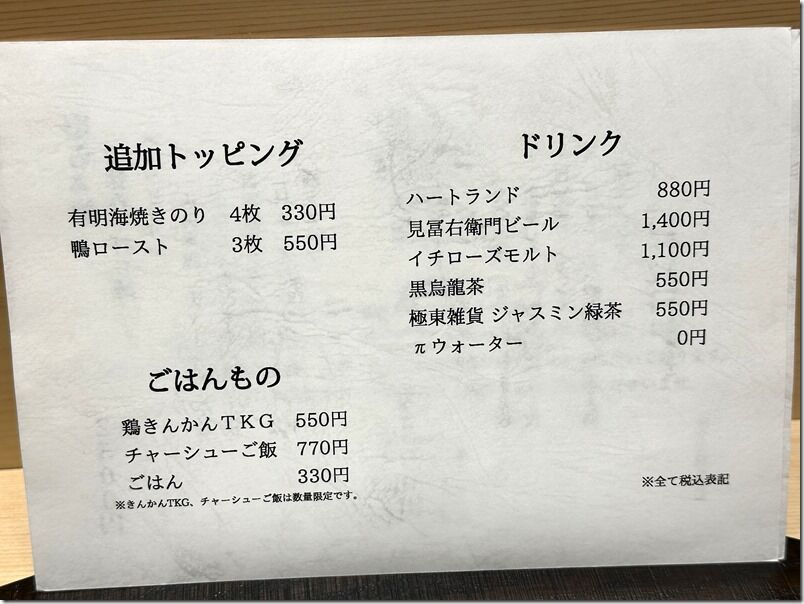 追加トッピング
有明海焼きのり 4枚 330円
鴨ロースト 3枚 550円
ごはんもの
鶏きんかんTKG 550円
チャーシューご飯 770円
ごはん 330円
※きんかんTKG、チャーシューご飯は数量限定です。
ドリンク
ハートランド 880円
見冨右衛門ビール 1,400円
イチローズモルト 1,100円
黒烏龍茶 550円
極東雑貨 ジャスミン緑茶 550円
πウォーター 0円
※全て税込表記